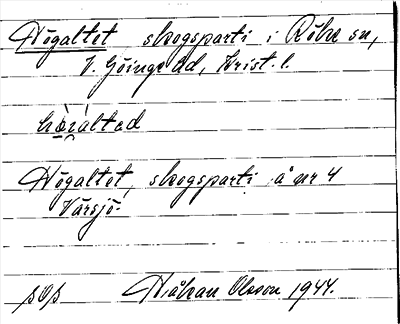 Högaltet skogsparti i Röke sn,
V. Göinge hd, Krist. l.
Högaltet, skogsparti å nr 4
Värsjö.
Håkan Olsson 1944.